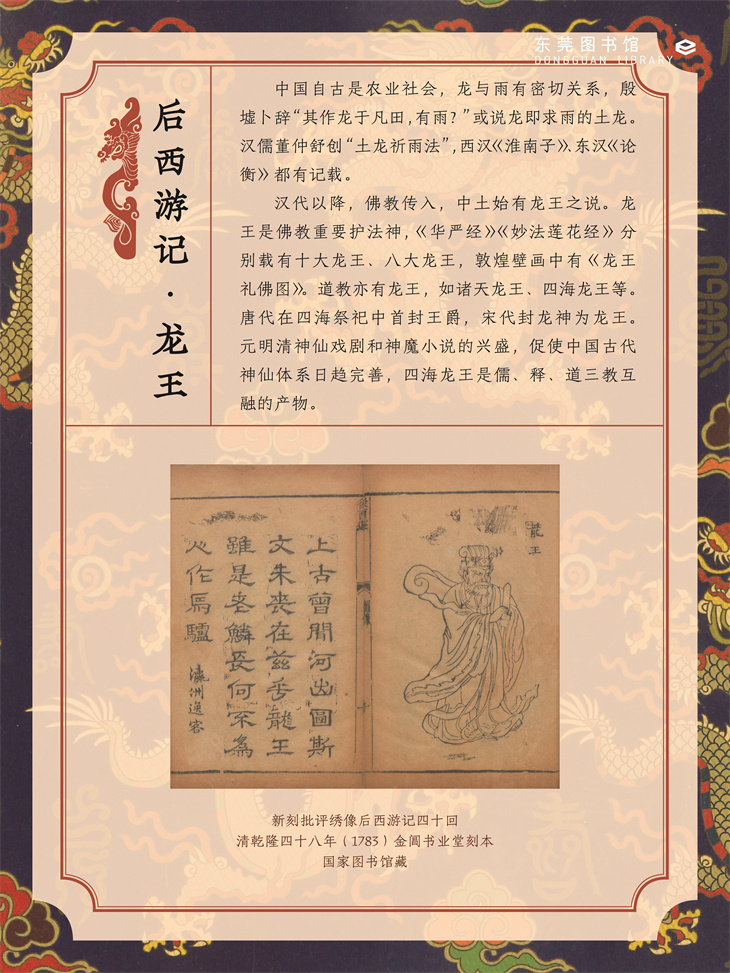 东莞图书馆
DONGGUAN LIBRARY
后西游记·龙王
中国自古是农业社会，龙与雨有密切关系，殷
墟卜辞“其作龙于凡田，有雨？”或说龙即求雨的土龙。
汉儒董仲舒创“土龙祈雨法”，西汉《淮南子》、东汉《论
衡》都有记载。
汉代以降，佛教传入，中土始有龙王之说。龙
王是佛教重要护法神，《华严经》《妙法莲花经》分
别载有十大龙王、八大龙王，敦煌壁画中有《龙王
礼佛图》。道教亦有龙王，如诸天龙王、四海龙王等。
唐代在四海祭祀中首封王爵，宋代封龙神为龙王。
元明清神仙戏剧和神魔小说的兴盛，促使中国古代
神仙体系日趋完善，四海龙王是儒、释、道三教互
融的产物。
龍王
十
上古曾聞河出圖斯
文未喪在茲乎龍王
雖是老鱗長何不為
作馬驢
瀛洲逸客
新刻批评绣像后西游记四十回
清乾隆四十八年（1783）金阊书业堂刻本
国家图书馆藏